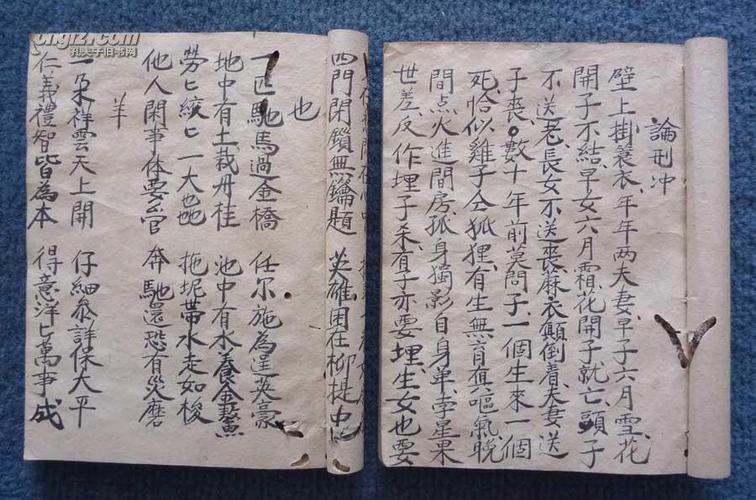 論刑冲
壁上掛蓑衣、年年两夫妻、早子六月雪、花
開子不结、早女六月霜、花開子就亡、頭子
不送老、長女不送喪、麻衣顛倒着、夫妻送
子喪。數十年前莫問子、一個生來一個
死、恰似雞子仝狐狸、有生無育真嘔氣、晚
間点火進間房、孤身獨影自身单、幸星果
世差、反作埋子杀、有子亦要埋、生女也要
四門閉鎖無鑰題 英雄困在柳提中
也
一匹馳馬過金橋 任尔施為逞英豪
地中有土栽丹桂 池中有水養金鰲
勞匕絞匕一大 拖坭帶水走如梭
他人閑事休要管 奔馳還恐有災磨
羊
一朵祥雲天上開 仔細叅詳保太平
仁義禮智皆為本 得意洋匕萬事成
孔夫子旧书网